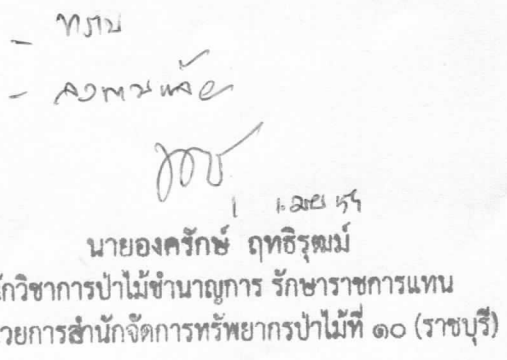 - ทราบ
- ลงนามแล้ว
นายองครักษ์ ฤทธิรุฒม์
ักวิชาการป่าไม้ชำนาญการ รักษาราชการแทน
วยการสำนักจัดการทรัพยากรป่าไม้ที่ ๑๐ (ราชบุรี)